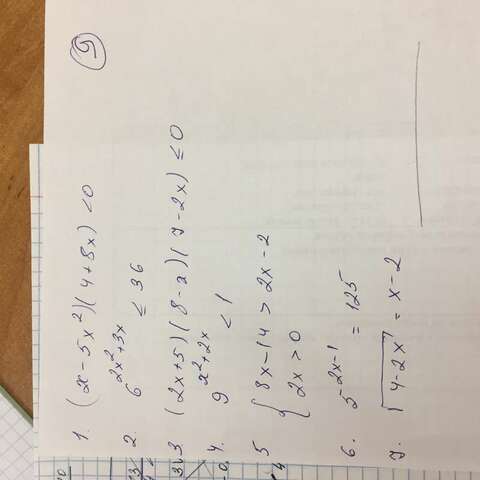 9
1. (x - 5x²)(4+8x) < 0
2. 6^(2x²+3x) ≤ 36
3. (2x+5)(8-x)(7-2x) ≤ 0
4. 9^(x²+2x) < 1
5 { 8x-14 > 2x-2
2x > 0
6. 5^(-2x-1) = 125
7. √(4-2x) = x-2